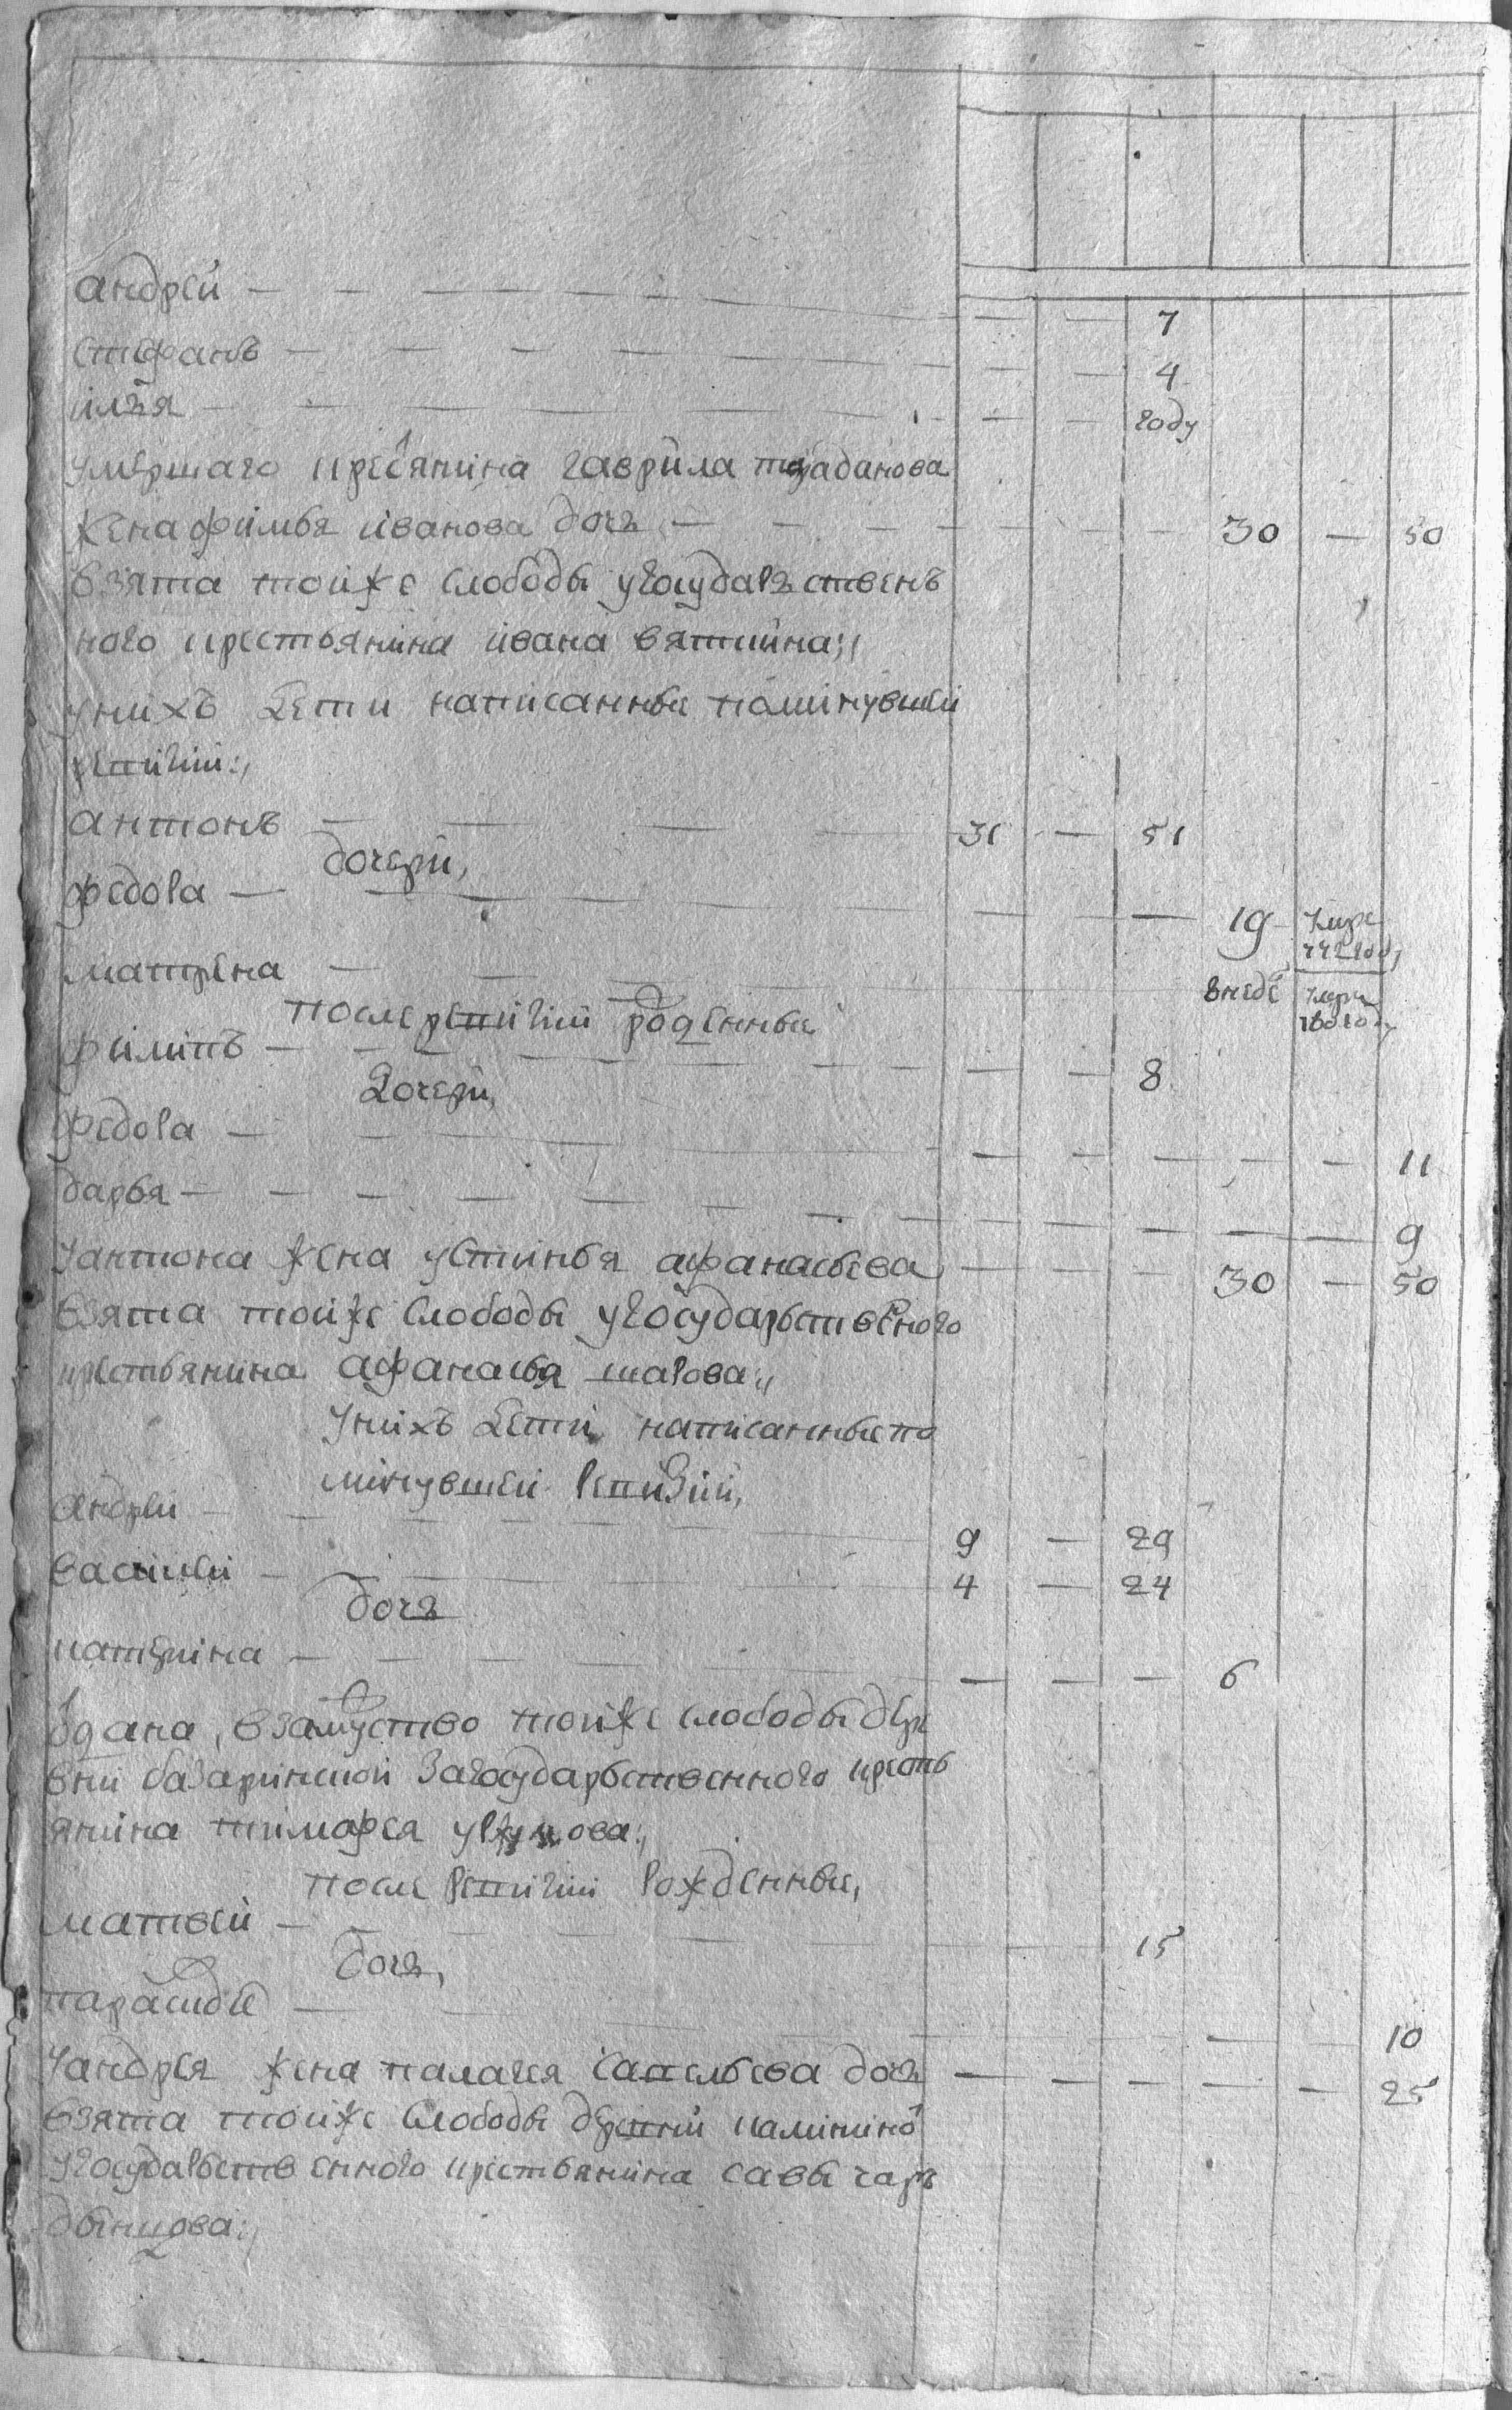 андрей — — — — 7
стефанъ — — — — 4
илья — — — — году
умершаго кресьянина гаврила
жена фимья иванова дочь — — — 30 — 50
взята тойже слободы угосударьственъ
ного крестьянина ивана вяткина:,
унихъ дети написанные поминувшей
ревизии:,
антонъ — — — — 31 — 51
дочери,
федора — — — — 19
матрена — — — вдве
после ревизии рожденные
филипъ — — — — 8
дочери,
федора — — — — 11
дарья — — — — 9
уантона жена устинья афанасьева — — — 30 — 50
взята тойже слободы угосударьственого
крестьянина афанасья шарова:,
унихъ дети написанные по
минувшей ревизии,
андрей — — — — 9 — 29
василей — — — — 4 — 24
дочь
катерина — — — — 6
вдана, взамуство тойже слободы дере
вни базаринской загосударьственного кресть
янина тимофея
после ревизии рожденные,
матвей — — — — 15
дочь,
парасковье — — — — 10
уандрея жена палагея савельева дочь — — — 25
взята тойже слободы деревни калинино
угосударьственного крестьянина савы чар
дынцова:,